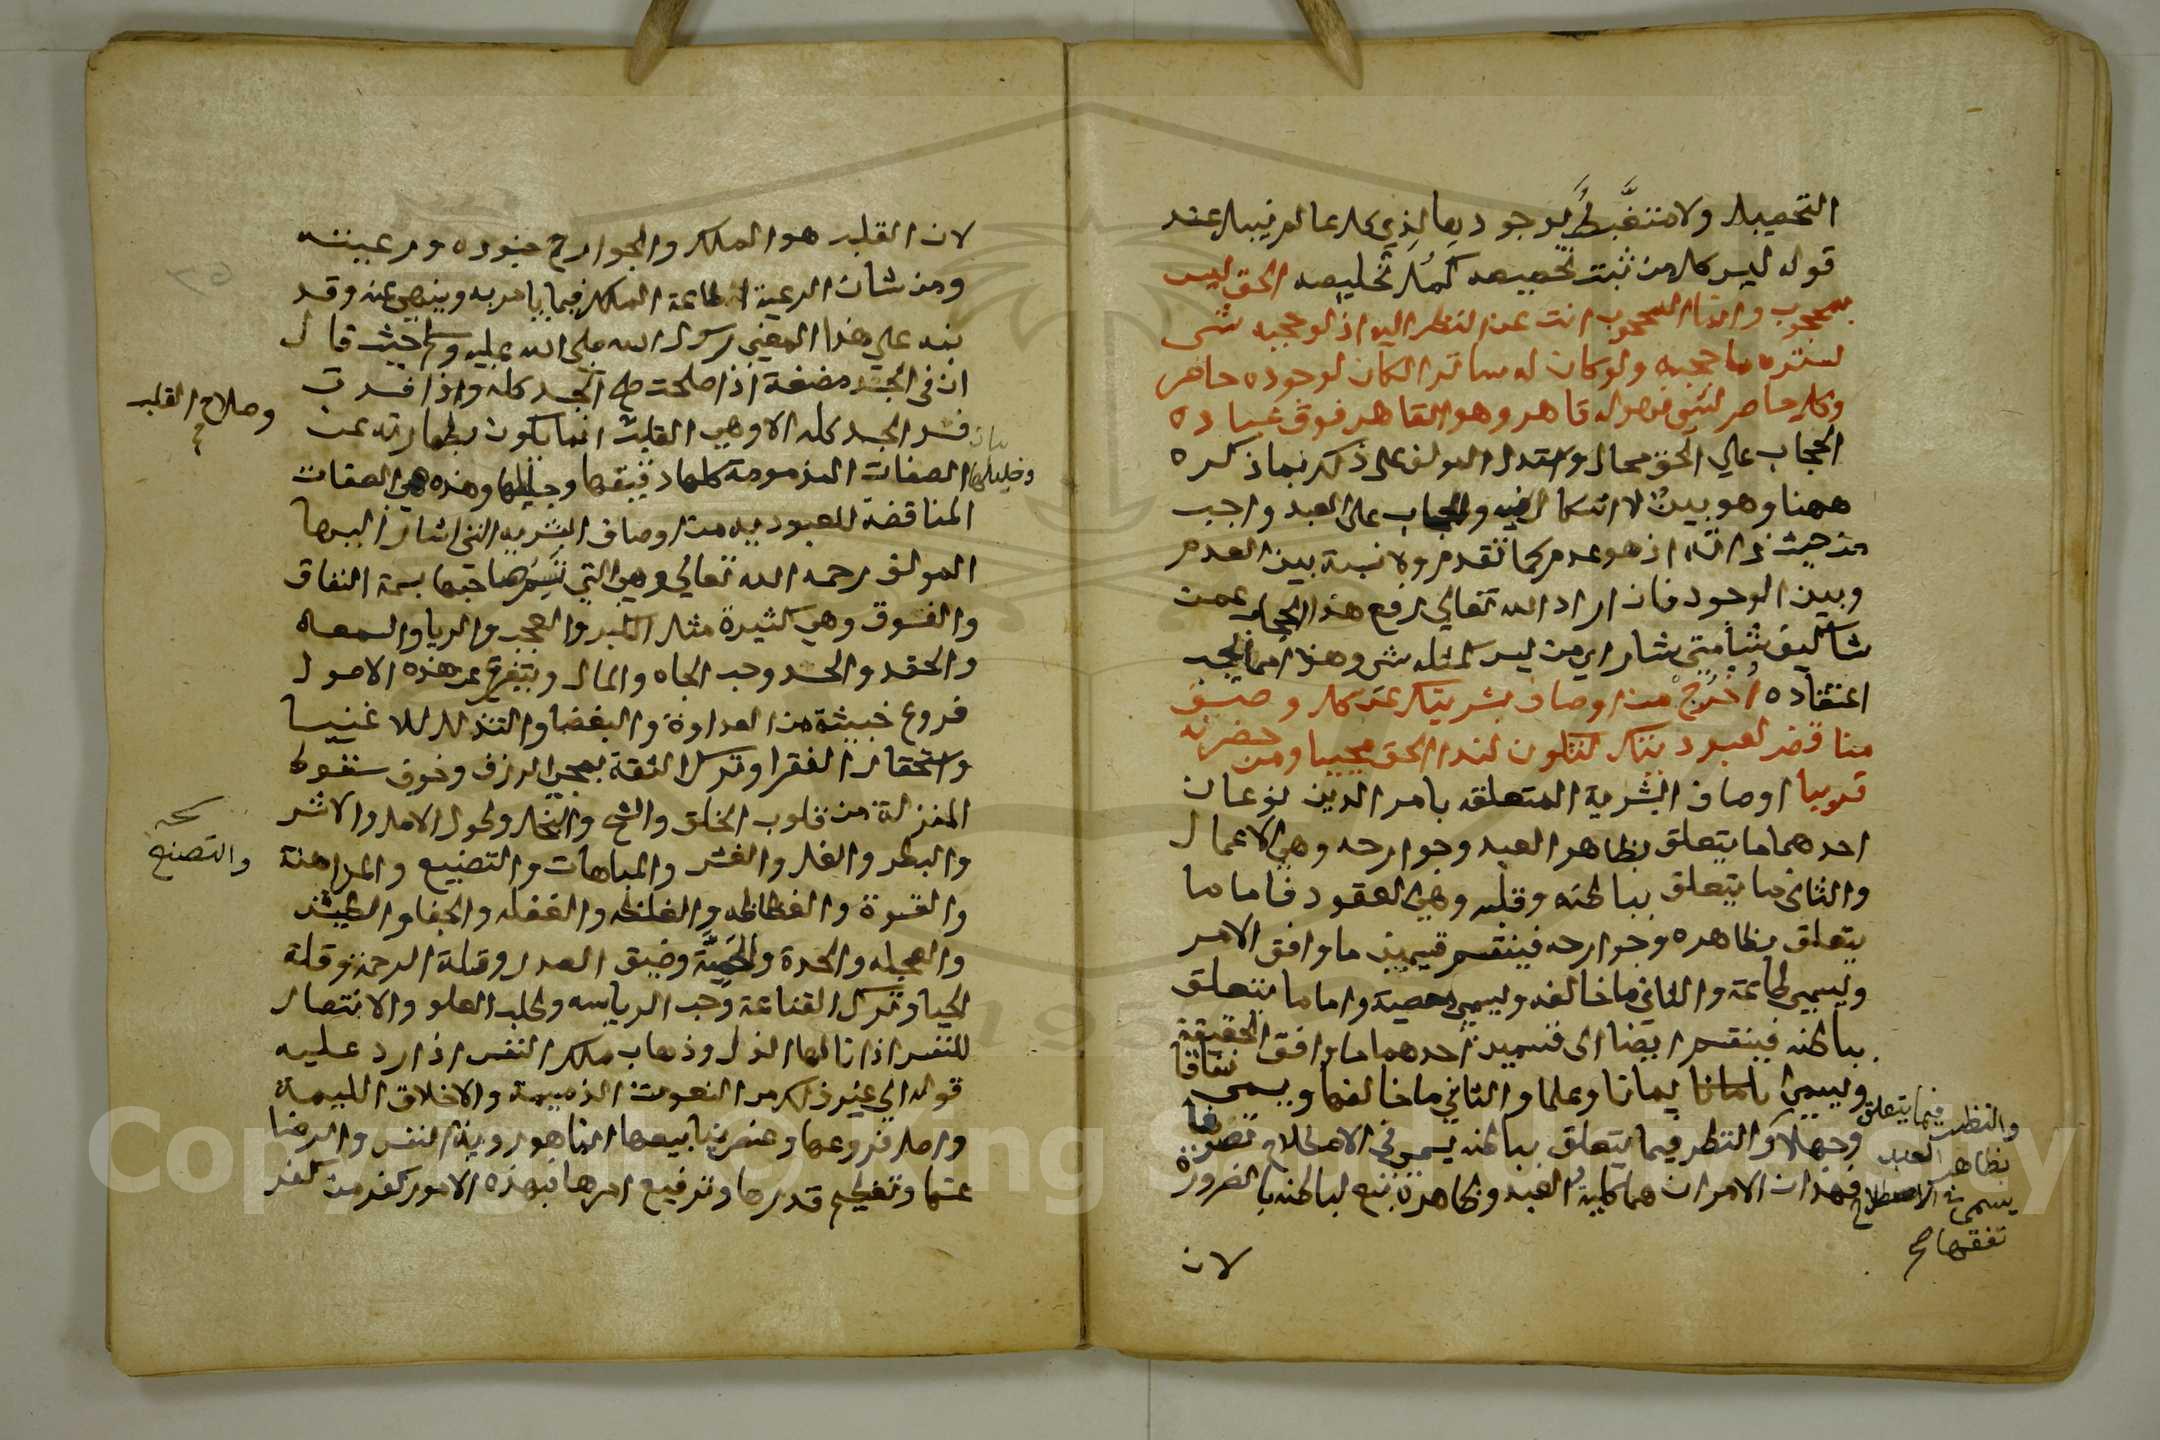 التخصيل ولا متغبط بوجود بها لذي كل عالم نبيل عند
قوله ليس كل من ثبت تخصيصه كمل تخليصه الحق ليس
بمحجوب وانما المحجوب انت عن النظر اليه اذ لو حجبه شي
لستره ما حجبه ولو كان له ساتر لكان لوجوده حاصر
وكل حاصر لشي فهو له قاهر وهو القاهر فوق عباده
الحجاب علي الحق محال واستدل المولف على ذلك بما ذكره
ههنا وهو بين لا اشكال فيه والحجاب على العبد واجب
من حيث ذاته اذ هو عدم كما تقدم ولا نسبة بين العدم
وبين الوجود فان اراد الله تعالي رفع هذا الحجاب عمن
شا كيف شا متي شا راي من ليس كمثله شي وهذا مما يجب
اعتقاده اخرج من اوصاف بشريتك عن كل وصف
مناقض لعبوديتك لتكون لندا الحق مجيبا ومن حضرته
قريبا اوصاف البشرية المتعلقه بامر الدين نوعان
احدهما ما يتعلق بظاهر العبد وجوارحه وهي الاعمال
والثاني ما يتعلق بباطنه وقلبه وهي العقود فاما ما
يتعلق بظاهره وجوارحه فينقسم قسمين ما وافق الامر
ويسمي طاعة والثاني ما خالفه ويسمي معصية واما ما يتعلق
بباطنه فينقسم ايضا الى قسمين احدهما ما وافق الحقيقة
ويسمي ايمانا وعلما والثاني ما خالفها ويسمى نفاقا
وجهلا والنظر فيما يتعلق بباطنه يسمي في الاصطلاح تصوفا
والنظر فيما يتعلق
بظاهر العبد
يسمى في الاصطلاح
تفقها صح
فهذان الامران هما كلية العبد وظاهره تبع لباطنه بالضرورة
لان
لان القلب هو الملك والجوارح جنوده ورعيته
ومن شان الرعية اطاعة الملك فيما يامر به وينهي عنه وقد
نبه علي هذا المعني رسول الله صلي الله عليه وسلم حيث قال
ان في الجسد مضغة اذا صلحت صلح الجسد كله واذا فسدت
فسد الجسد كله الا وهي القلب انما يكون بطهارته عن
وصلاح القلب
الصفات المذمومة كلها دقيقها وجليلها وهذه هي الصفات
المناقضة للعبوديه من اوصاف البشريه التي اشار اليها
المولف رحمه الله تعالي وهي التي تسم صاحبها بسمة النفاق
والفسوق وهي كثيرة مثل الكبر والعجب والريا والسمعه
والحقد والحسد وحب الجاه والمال ويتفرع عن هذه الاصول
فروع خبيثة من العداوة والبغضا والتذلل للاغنيا
واستحقار الفقرا وترك الثقة بمجي الرزق وخوف سقوط
المنزلة من قلوب الخلق والشح والبخل وطول الامل والاشر
والبطر والغل والغش والمباهات والتضييع والمداهنة
نسخه
والتصنع
والقسوة والفظاظه والغلظه والغفله والجفا والطيش
والعجله والحدة والحمية وضيق الصدر وقلة الرحمة وقلة
الحيا وترك القناعة وحب الرياسه وطلب العلو والانتصار
للنفس اذا نالها الذل وذهاب ملك النفس اذا رد عليه
قوله الي غير ذلك من النعوت الذميمة والاخلاق اللييمة
واصل فروعها وعنصر ينابيعها انما هو روية النفس والرضا
عنها وتعظيم قدرها وترفيع امرها فبهذه الامور كفر من كفر